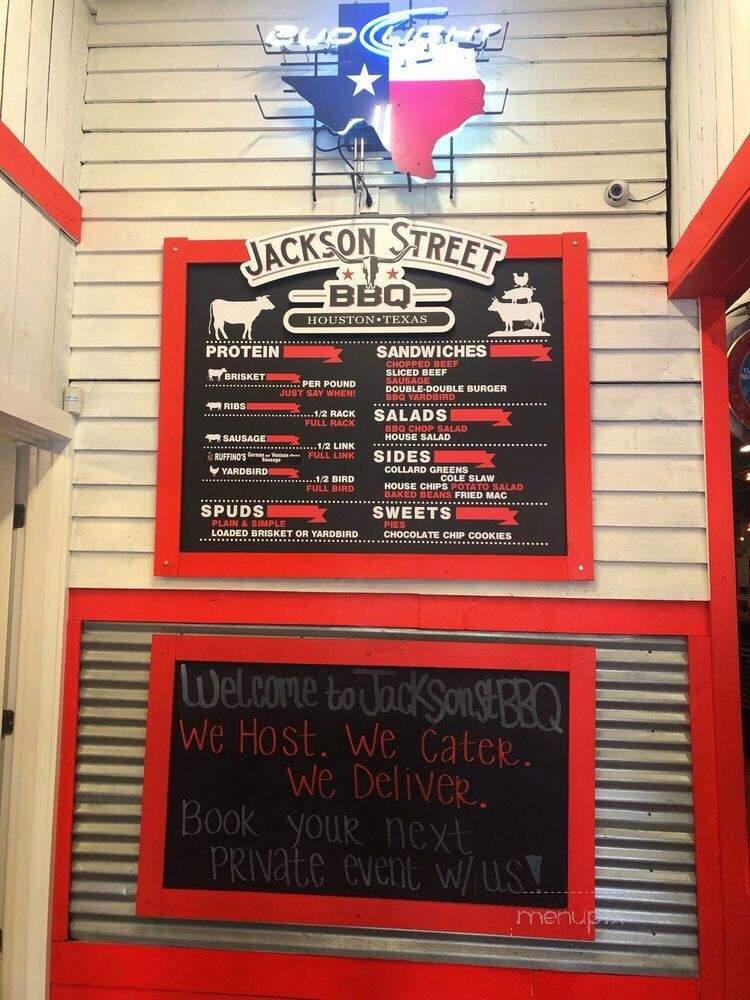 BUD LIGHT
JACKSON STREET
BBQ
HOUSTON • TEXAS
PROTEIN
BRISKET
PER POUND
JUST SAY WHEN!
RIBS
1/2 RACK
FULL RACK
SAUSAGE
1/2 LINK
FULL LINK
RUFFINO'S German and Venison Sausage
YARDBIRD
1/2 BIRD
FULL BIRD
SPUDS
PLAIN & SIMPLE
LOADED BRISKET OR YARDBIRD
SANDWICHES
CHOPPED BEEF
SLICED BEEF
SAUSAGE
DOUBLE-DOUBLE BURGER
BBQ YARDBIRD
SALADS
BBQ CHOP SALAD
HOUSE SALAD
SIDES
COLLARD GREENS
COLE SLAW
HOUSE CHIPS POTATO SALAD
BAKED BEANS FRIED MAC
SWEETS
PIES
CHOCOLATE CHIP COOKIES
Welcome to Jackson St BBQ
We Host. We Cater.
We Deliver.
Book your next
private event w/ us!
menupix